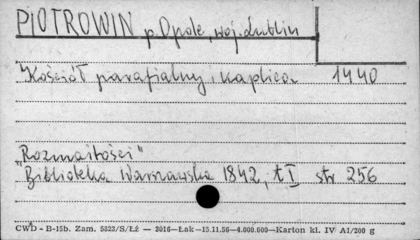 PIOTROWIN p. Opole, woj. Lublin
Kościół parafialny i kaplica 1440
"Rozmaitości"
"Biblioteka Warszawska 1842, t I str 256
CWD - B-15b. Zam. 5823/S/Łż — 3016—Łak—15.11.56—4.000.000—Karton kl. IV A1/200 g